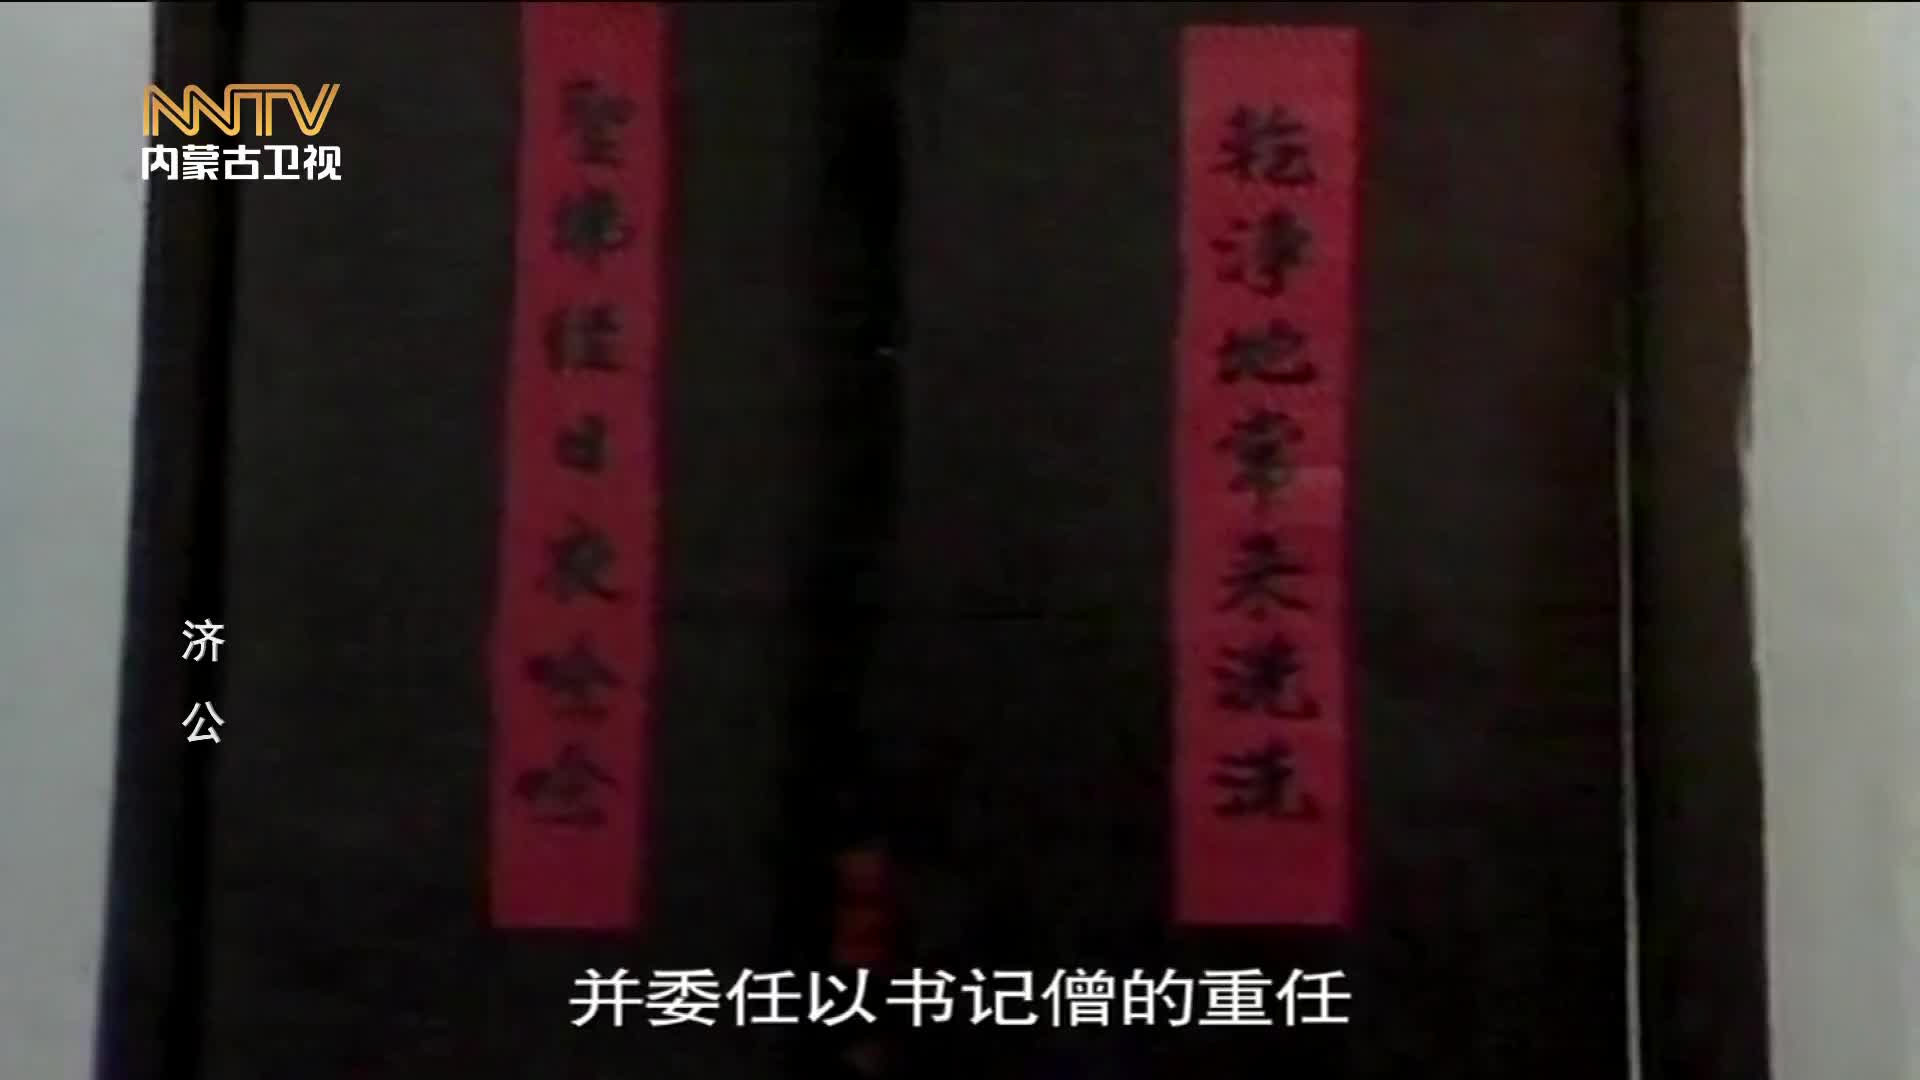 NNTV
内蒙古卫视
乾淨地常来洗洗
聖佛怪日夜唸唸
济公
并委任以书记僧的重任